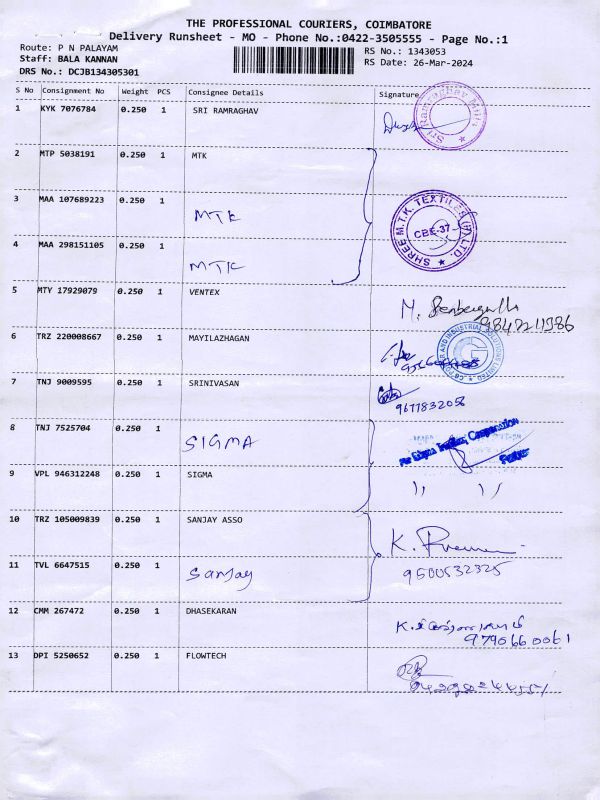 THE PROFESSIONAL COURIERS, COIMBATORE
Delivery Runsheet - MO - Phone No.:0422-3505555 - Page No.:1
Route: P N PALAYAM
RS No.: 1343053
Staff: BALA KANNAN
RS Date: 26-Mar-2024
DRS No.: DCJB134305301
S No Consignment No Weight PCS Consignee Details Signature
1 KYK 7076784 0.250 1 SRI RAMRAGHAV
Sri Ramraghav Mills
2 MTP 5038191 0.250 1 MTK
3 MAA 107689223 0.250 1 MTK
SHREE M.T.K. TEXTILES (P) LTD.
CBE-37
4 MAA 298151105 0.250 1 MTK
5 MTY 17929079 0.250 1 VENTEX
M.
9842211986
6 TRZ 220008667 0.250 1 MAYILAZHAGAN
7 TNJ 9009595 0.250 1 SRINIVASAN
9677832056
8 TNJ 7525704 0.250 1 SIGMA
For Sigma Trading Corporation
Partner
9 VPL 946312248 0.250 1 SIGMA
10 TRZ 105009839 0.250 1 SANJAY ASSO
K.
11 TVL 6647515 0.250 1 Sanjay
9500532325
12 CMM 267472 0.250 1 DHASEKARAN
9790660061
13 DPI 5250652 0.250 1 FLOWTECH